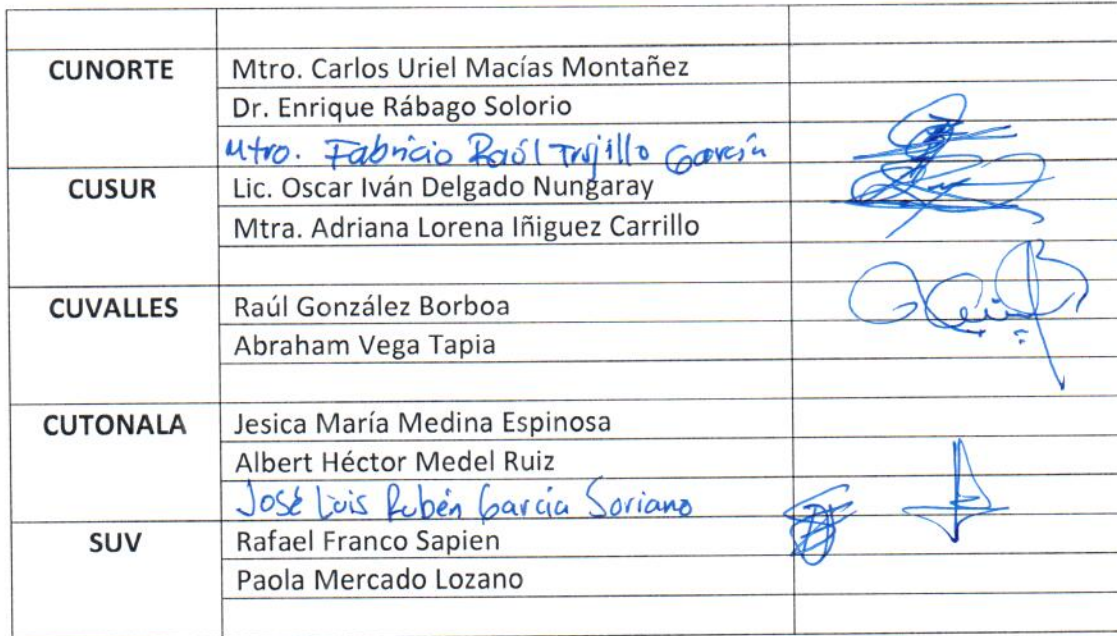 CUNORTE Mtro. Carlos Uriel Macías Montañez
Dr. Enrique Rábago Solorio
Mtro. Fabricio Raúl Trujillo García
CUSUR Lic. Oscar Iván Delgado Nungaray
Mtra. Adriana Lorena Iñiguez Carrillo
CUVALLES Raúl González Borboa
Abraham Vega Tapia
CUTONALA Jesica María Medina Espinosa
Albert Héctor Medel Ruiz
José Luis Rubén García Soriano
SUV Rafael Franco Sapien
Paola Mercado Lozano